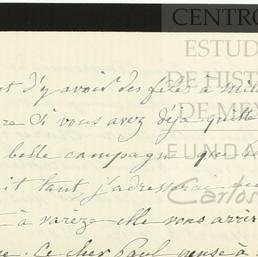 CENTRO
ESTUD
DE HISTO
DE MÉX
FUNDA
Carlos
t d'y avoir des fêtes à Mil
re si vous avez déjà quitté
belle campagne que
it tant j'adresserai
t à varèze elle vous arrir
Ce cher Paul pense à